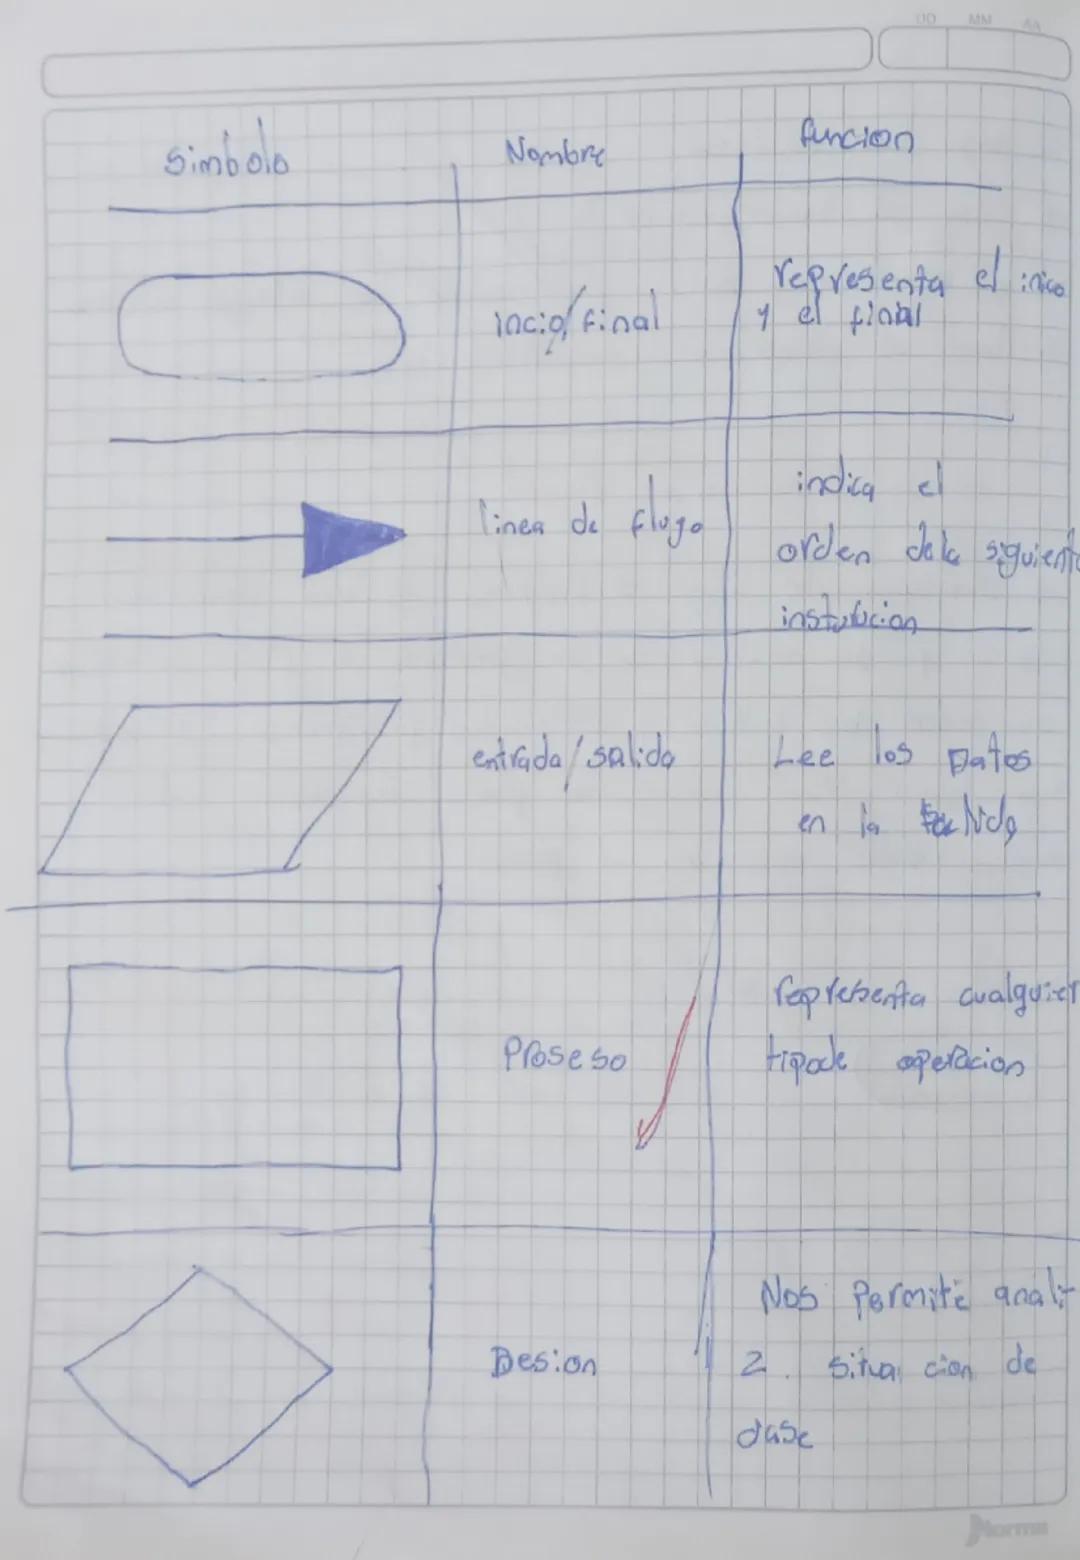 DD MM AA
Simbolo Nombre funcion
incio/final representa el inico
y el final
linea de flugo indica el
orden dela siguiente
entrada/salida Lee los Datos
en la
Proseso representa cualquier
tipode operacion
Desion Nos Permite anali
2. situa cion de
dase
Norma